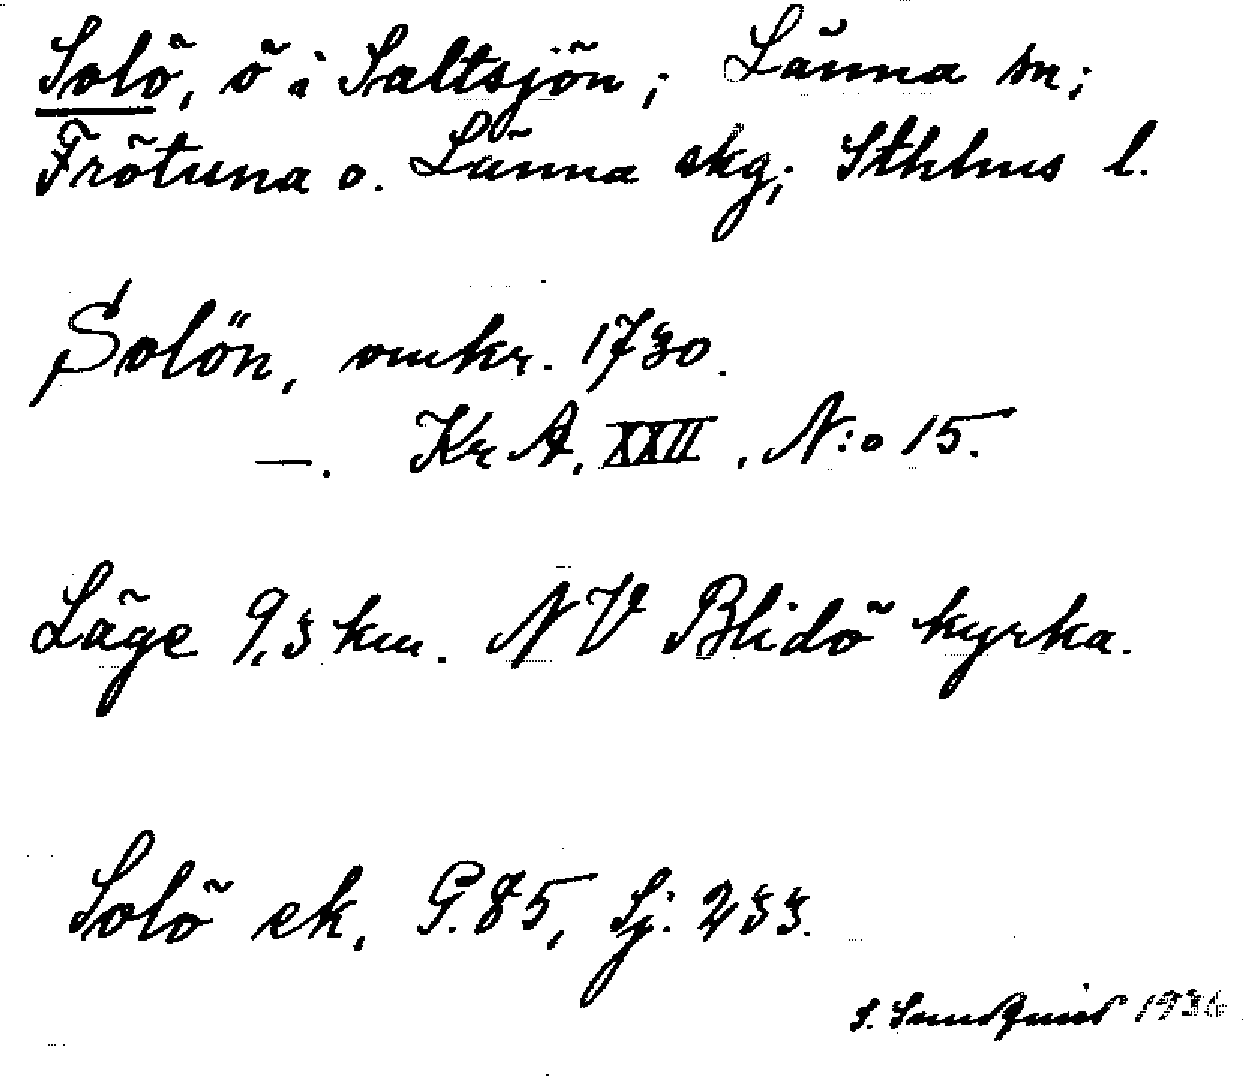 Solö, ö i Saltsjön; Länna sn;
Frötuna o. Länna skg; Sthlms l.
Solön, omkr. 1730.
—. Kr A. XXII. N:o 15.
Läge 9,3 km. NV Blidö kyrka.
Solö ek. G. 85, Sj. 233.
S. Sundquist 1936